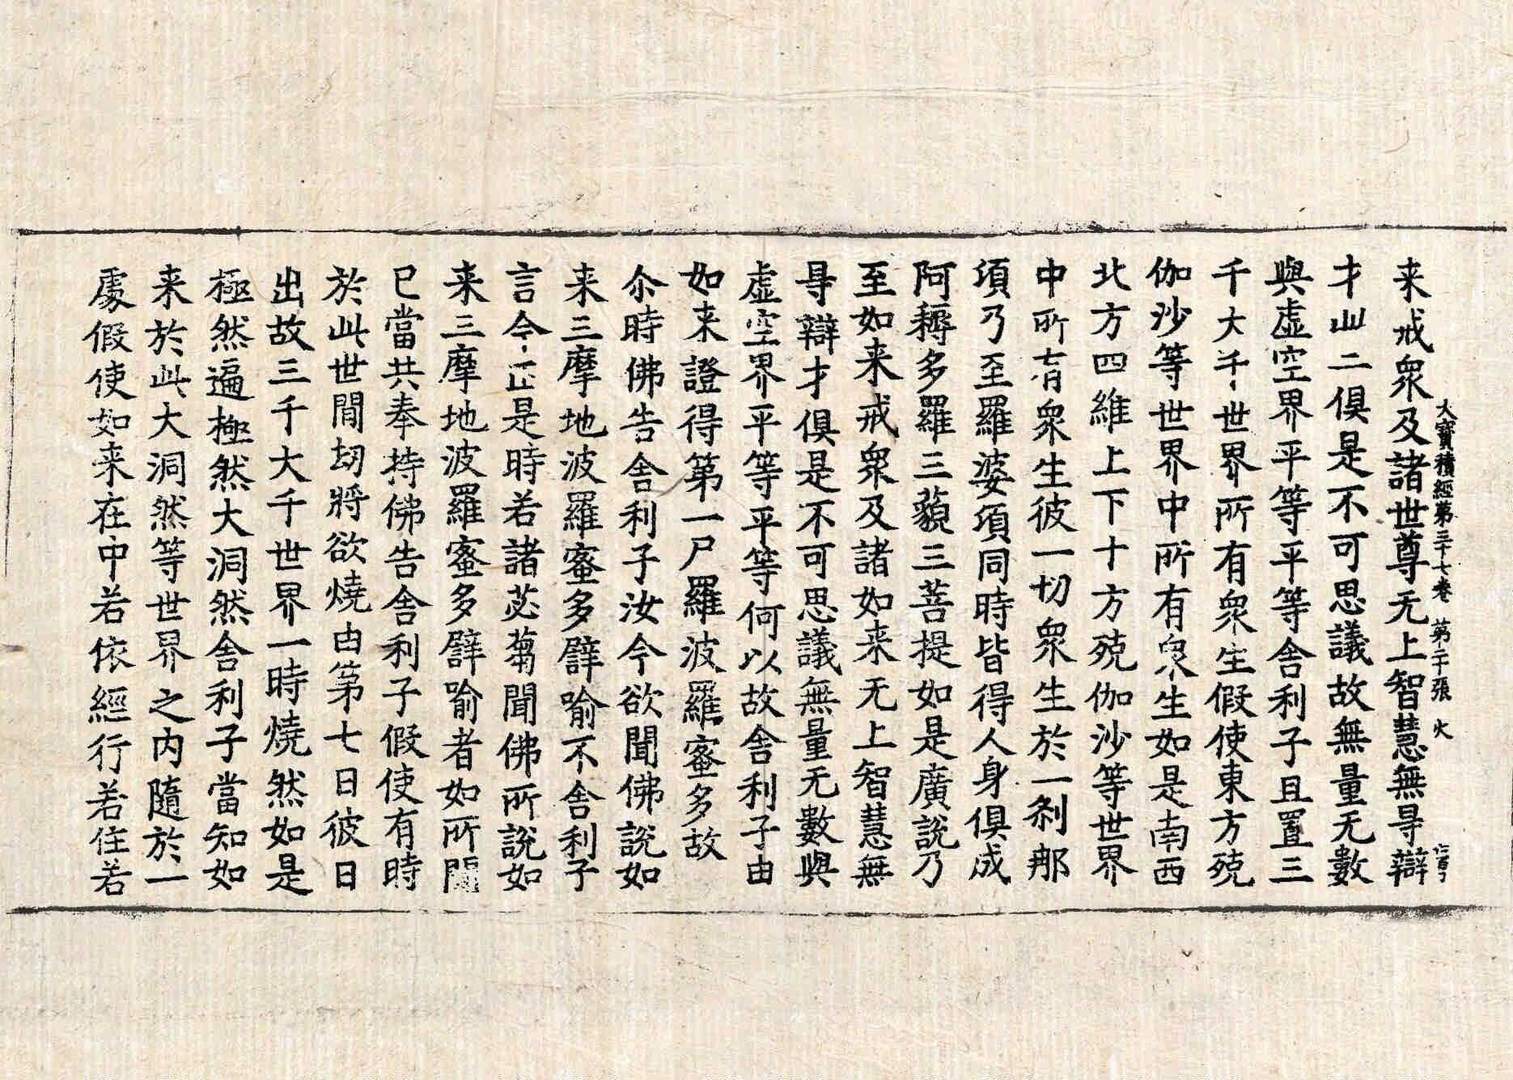 大寶積經第三十七卷 第二十張 火
来戒衆及諸世尊无上智慧無㝵辯
才此二俱是不可思議故無量无數
與虛空界平等平等舍利子且置三
千大千世界所有衆生假使東方殑
伽沙等世界中所有衆生如是南西
北方四維上下十方殑伽沙等世界
中所有衆生彼一切衆生於一剎那
須乃至羅婆須同時皆得人身俱成
阿耨多羅三藐三菩提如是廣說乃
至如来戒衆及諸如来无上智慧無
㝵辯才俱是不可思議無量无數與
虛空界平等平等何以故舍利子由
如来證得第一尸羅波羅蜜多故
尒時佛告舍利子汝今欲聞佛說如
来三摩地波羅蜜多譬喻不舍利子
言今正是時若諸苾蒭聞佛所說如
来三摩地波羅蜜多譬喻者如所聞
已當共奉持佛告舍利子假使有時
於此世間劫將欲燒由第七日彼日
出故三千大千世界一時燒然如是
極然遍極然大洞然舍利子當知如
来於此大洞然等世界之內隨於一
處假使如来在中若依經行若住若